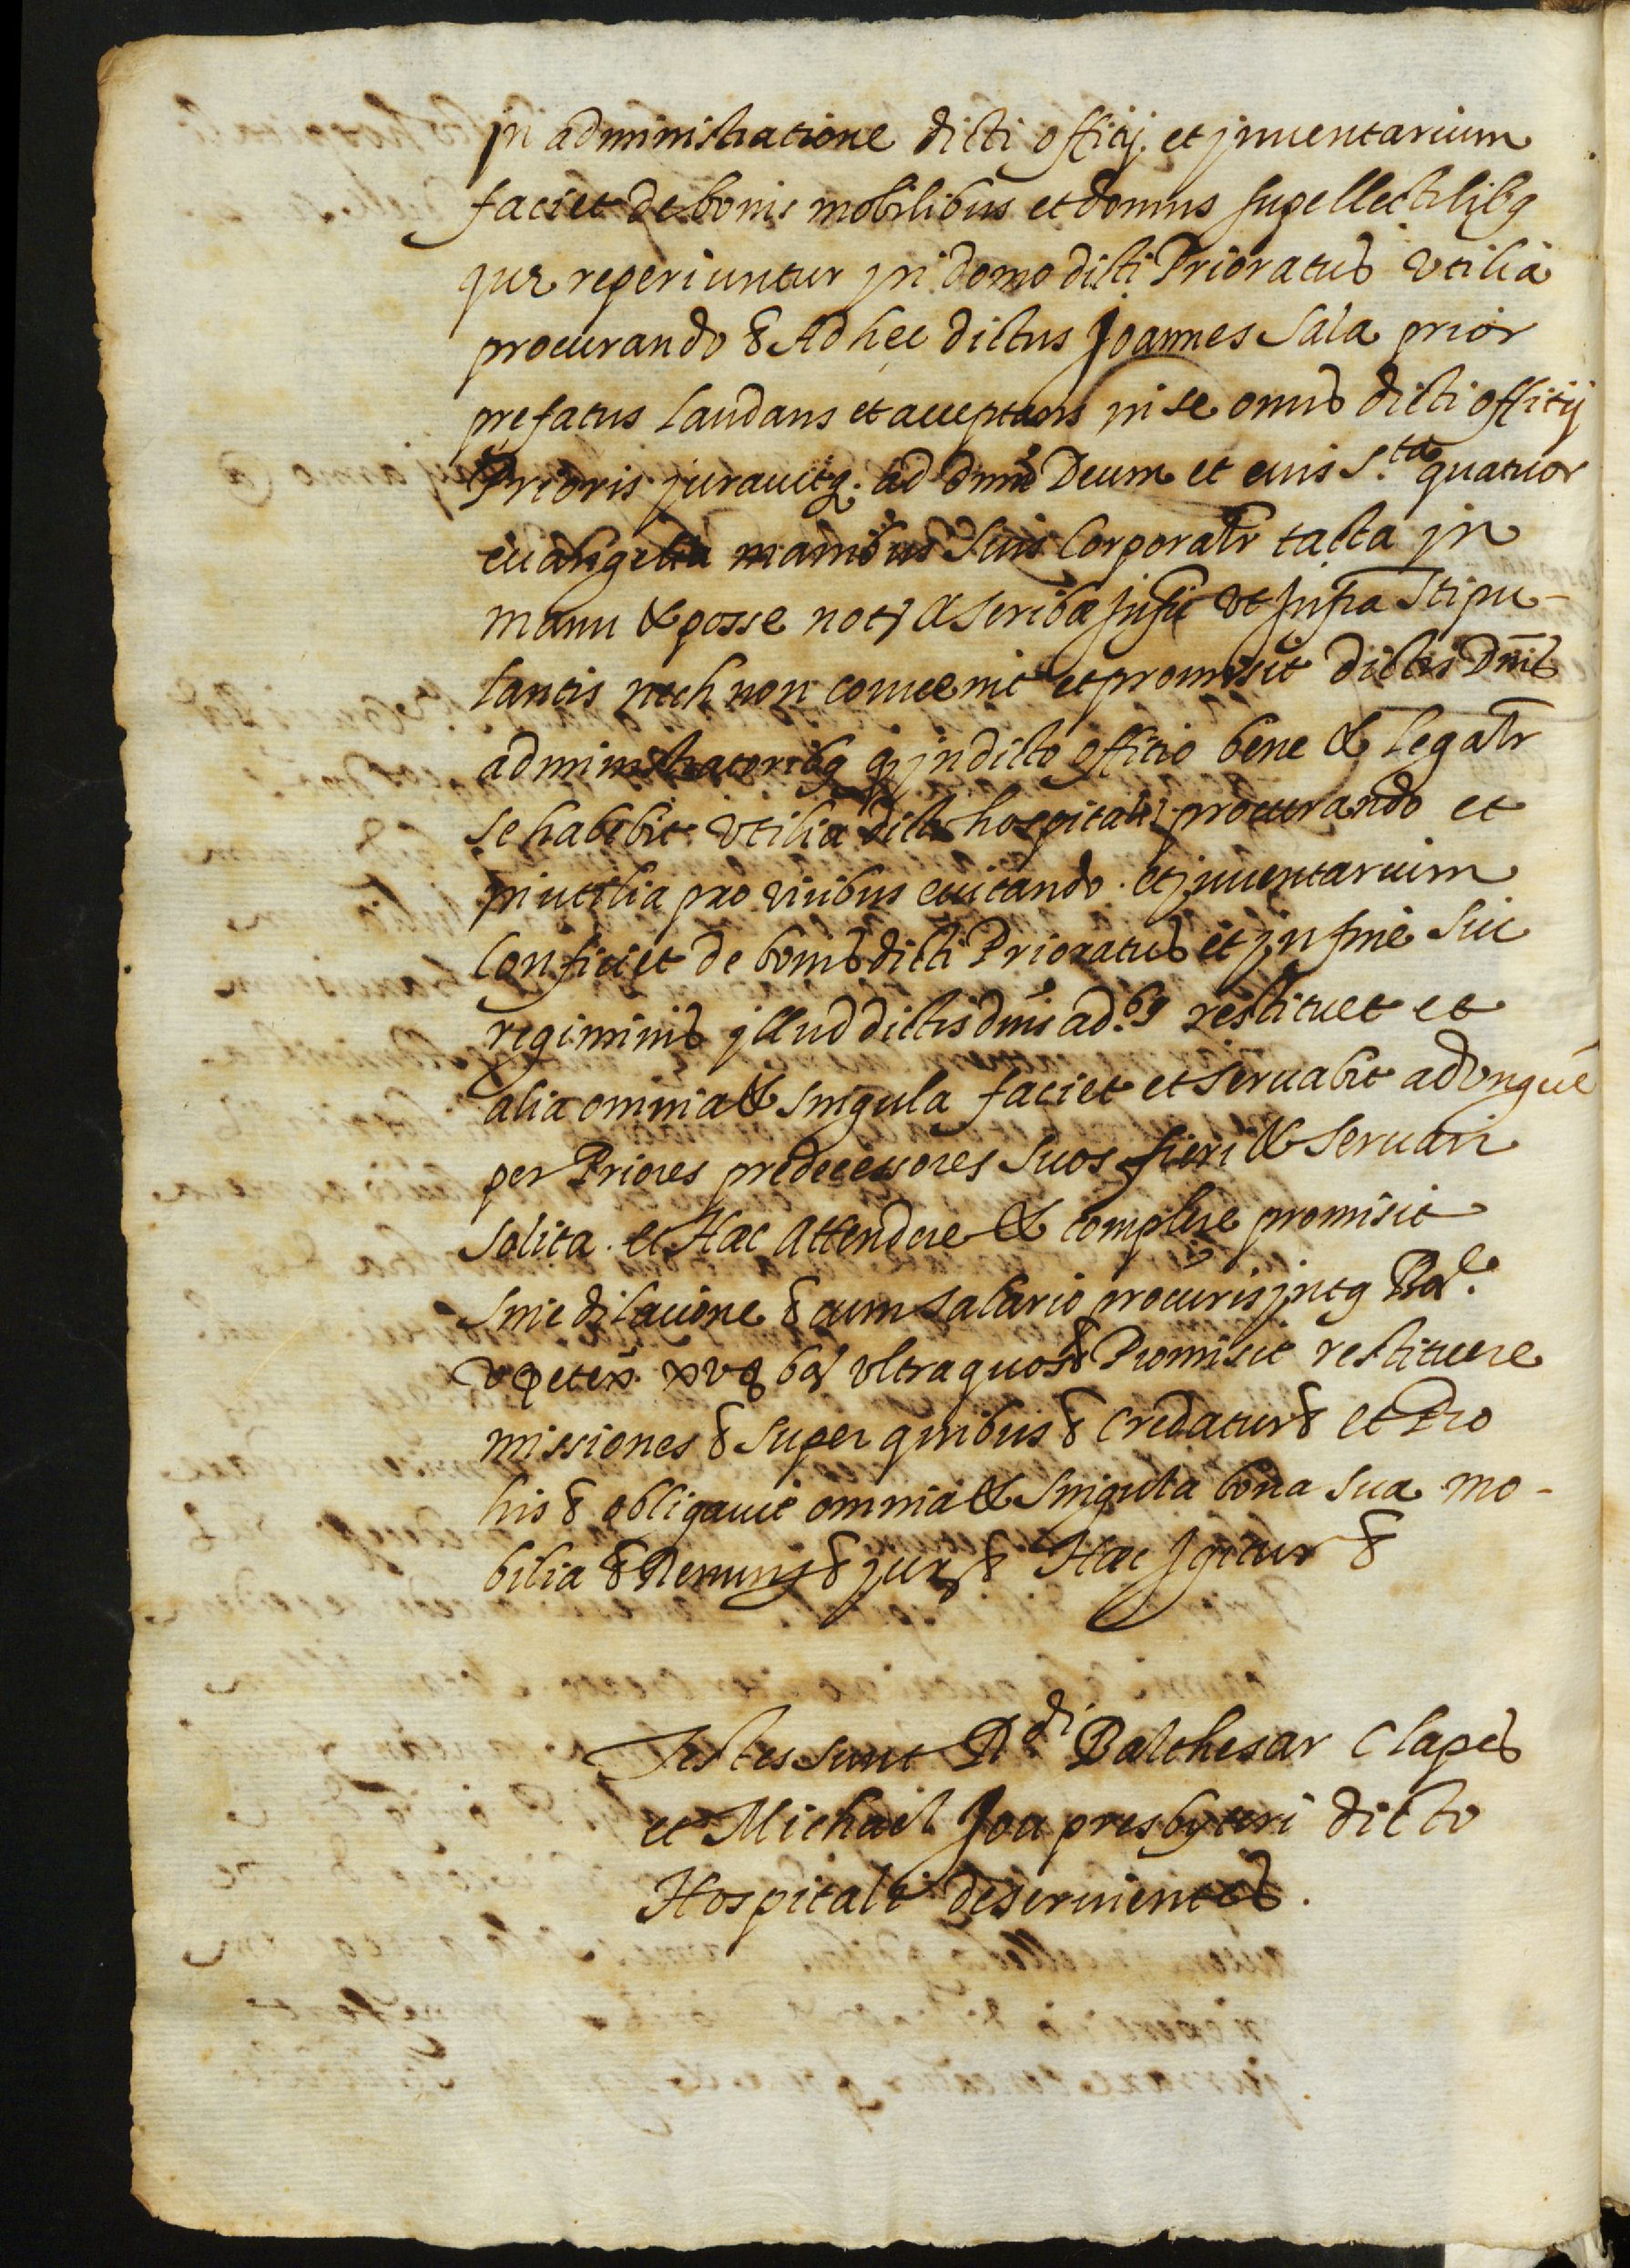 jn administratione dicti offitij et jnuentarium
faciet de bonis mobilibus et domus supellectilibq
que reperiuntur jn domo dicti Prioratus vtilia
procurando & Ad hec dictus Joannes Sala prior
prefatus Laudans et acceptans jn se onus dicti offitij
Prioris jurauitq. ad dnm Deum et eius s.ta quatuor
euangelia manibus suis Corporalr tacta jn
manu & posse notj & scribæ jnfri vt jnfra stipu-
lantis nech non conuenit et promisit dictis Dnis
administratoribq q jn dicto offitio bene & legalr
se habebit vtilia dicti hospitalis procurando et
jnutilia pro viribus euitando. et jnuentarium
Conficiet de bonis dicti Prioratus et jn fine sui
regiminis jllud dictis dnis ad.bq restituet et
alia omnia & singula faciet et seruabit ad vngue
per Priores predecessores suos fieri & seruari
solita. et Hæc Attendere & complere promisit
sine dilatione & cum salario procuris jntq Bar.
et extra ultra quos & Promisit restituere
missiones & super quibus & credatur & et Pro
his & obligauit omnia & singula bona sua mo-
bilia & Renunt & jur & Hæc Jgitur &
Testes sunt Rdi Balthesar Clapes
et Michael Joa presbyteri dicto
Hospitali deseruientes.